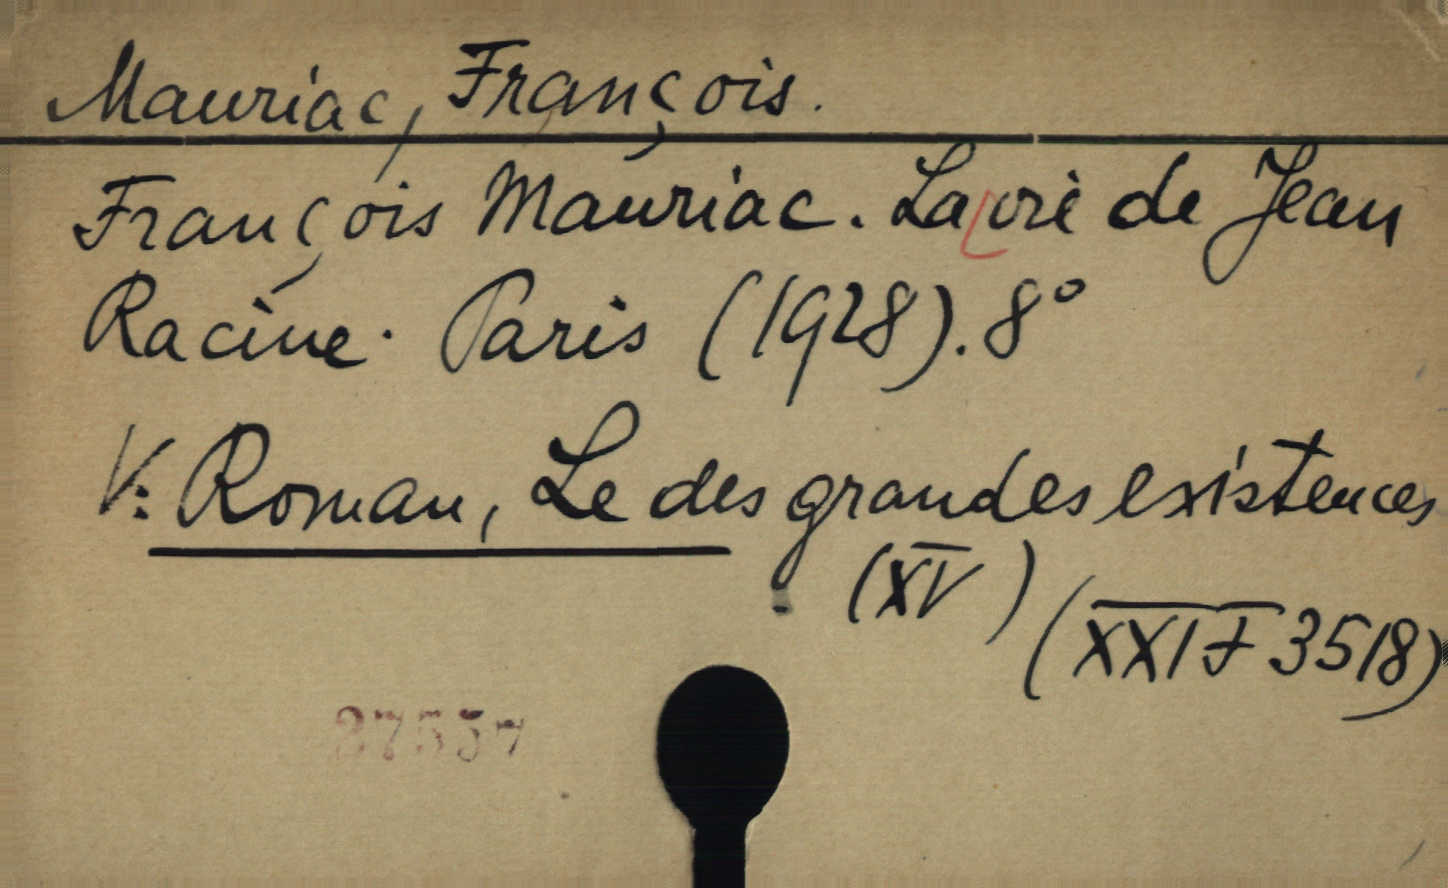 Mauriac, François.
François Mauriac. La vie de Jean
Racine. Paris (1928). 8°
V: Roman, Le des grandes existences
(XV) (XXI F 3518)